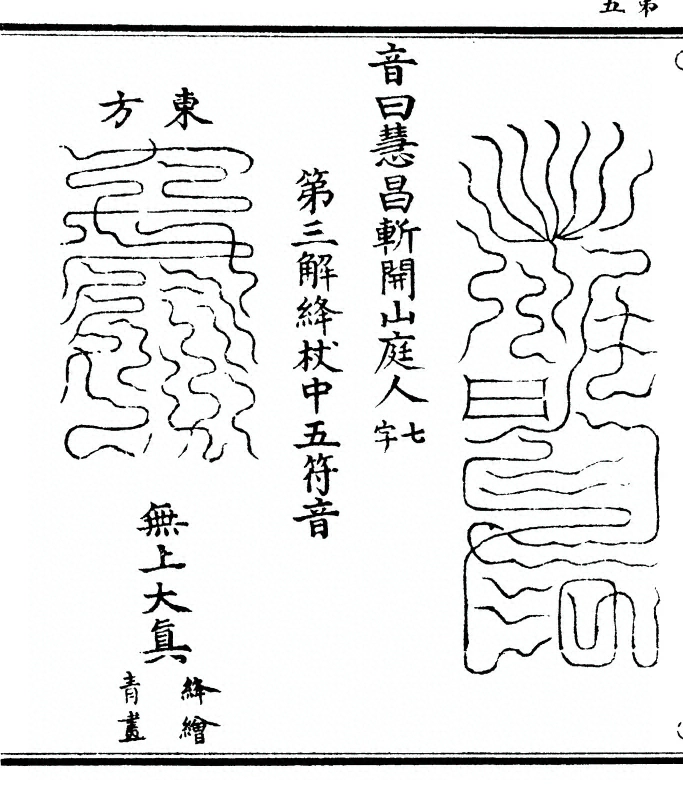 第五
音曰慧昌斬開山庭人七字
第三解絳杖中五符音
東方
無上大眞絳繒青畫